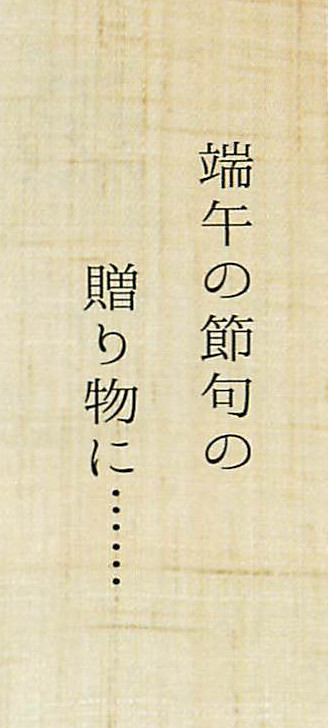 端午の節句の
贈り物に……